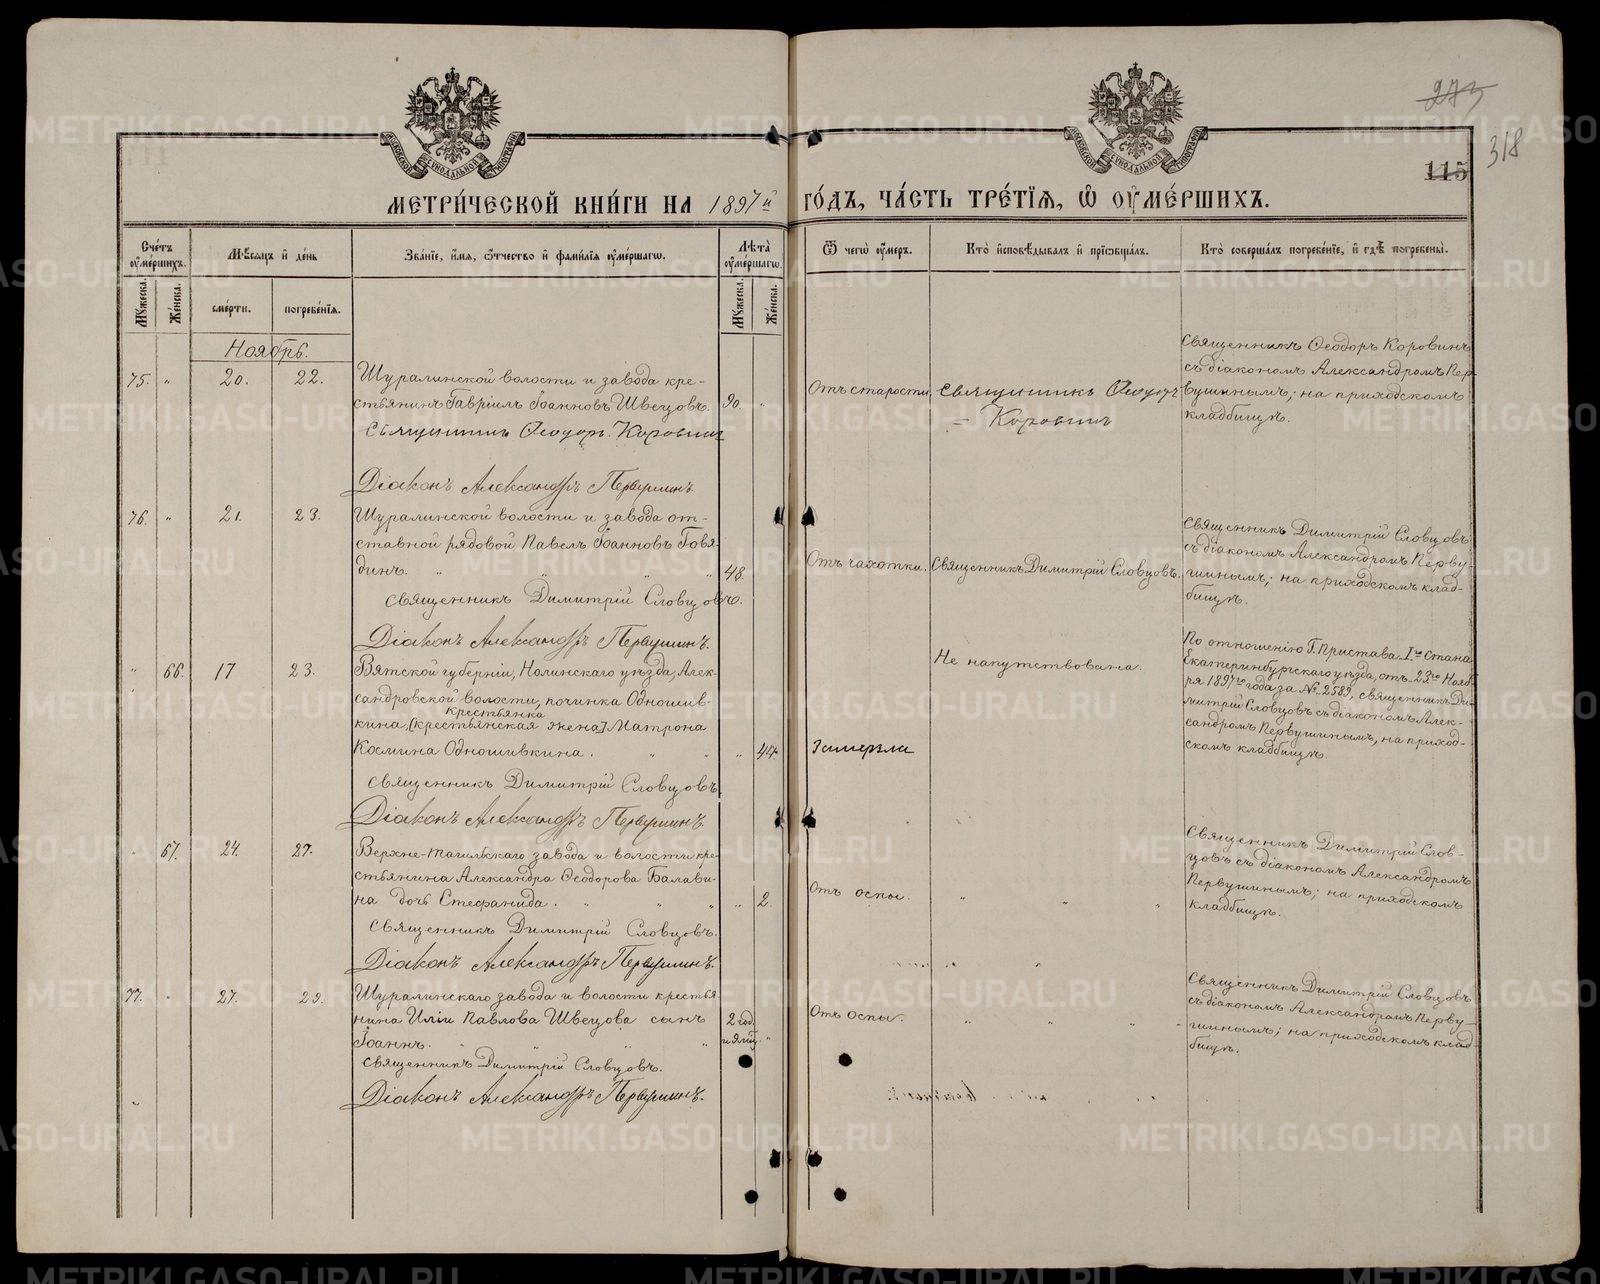 273
318
115
МОСКОВСКОЙ СѴНОДАЛЬНОЙ ТИПОГРАФІИ
МОСКОВСКОЙ СѴНОДАЛЬНОЙ ТИПОГРАФІИ
МЕТРИ́ЧЕСКОЙ КНИ́ГИ НА 1897й ГО́ДЪ, ЧА́СТЬ ТРЕ́ТЇЯ, Ѡ ОУМЕ́РШИХЪ.
Сче́тъ оуме́ршихъ.
Мѣ́сяцъ и҆ де́нь
Зва́нїе, и҆́мя, ѻ҆́тчество и҆ фами́лїя оуме́ршагѡ.
Лѣ́та оуме́ршагѡ.
Ѿ чегѡ̀ оу́меръ.
Кто̀ и҆сповѣ́дывалъ и҆ прїѡбща́лъ.
Кто̀ соверша́лъ погребе́нїе, и҆ гдѣ̀ погребены̀.
Му́жеска. Же́нска.
сме́рти. погребе́нїя.
Му́жеска. Же́нска.
Ноябрь.
75. " 20. 22.
Шуралинской волости и завода кре-
стьянинъ Гавріилъ Іоанновъ Швецовъ. 90. "
Священникъ Ѳеодоръ Коровинъ
Діаконъ Александръ Первушинъ.
Отъ старости.
Священникъ Ѳеодоръ
= Коровинъ
Священникъ Ѳеодоръ Коровинъ
съ діакономъ Александромъ Пер-
вушинымъ; на приходскомъ
кладбищѣ.
76. " 21. 23.
Шуралинской волости и завода от-
ставной рядовой Павелъ Іоанновъ Говя-
динъ. " " " " 48.
Священникъ Димитрій Словцовъ.
Діаконъ Александръ Первушинъ.
Отъ чахотки.
Священникъ Димитрій Словцовъ.
Священникъ Димитрій Словцовъ
съ діакономъ Александромъ Перву-
шинымъ; на приходскомъ клад-
бищѣ.
" 66. 17 23.
Вятской губерніи, Нолинскаго уѣзда, Алек-
сандровской волости, починка Одношив-
крестьянка
кина, [крестьянская жена] Матрона
Космина Одношивкина. " " " 45.
Священникъ Димитрій Словцовъ.
Діаконъ Александръ Первушинъ.
Замерзла
Не напутствована.
По отношенію Г. Пристава I го Стана
Екатеринбургскаго уѣзда, отъ 23го Нояб-
ря 1897го года за № 2589, священникъ Ди-
митрій Словцовъ съ діакономъ Алек-
сандромъ Первушинымъ, на приход-
скомъ кладбищѣ.
" 67. 24. 27.
Верхне-Тагильскаго завода и волости кре-
стьянина Александра Ѳеодорова Балави-
на дочь Стефанида. " " " " 2.
Священникъ Димитрій Словцовъ.
Діаконъ Александръ Первушинъ.
Отъ оспы.
" " "
Священникъ Димитрій Слов-
цовъ съ діакономъ Александромъ
Первушинымъ; на приходскомъ
кладбищѣ.
77. " 27. 29.
Шуралинскаго завода и волости крестья-
нина Иліи Павлова Швецова сынъ 2 год.
Іоаннъ. " " " "
Священникъ Димитрій Словцовъ.
Діаконъ Александръ Первушинъ.
Отъ оспы.
" " " "
Священникъ Димитрій Словцовъ
съ діакономъ Александромъ Перву-
шинымъ; на приходскомъ клад-
бищѣ.
METRIKI.GASO-URAL.RU